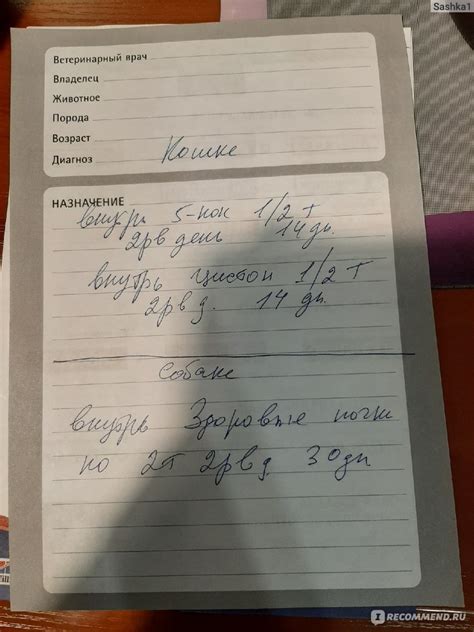 Sashka1
Ветеринарный врач
Владелец
Животное
Порода
Возраст
Диагноз Кошке
НАЗНАЧЕНИЕ
внутрь 5-нок 1/2 т
2 р в день 14 дн.
внутрь цистон 1/2 т
2 р в д. 14 дн.
Собаке
внутрь Здоровые почки
по 2т 2 р в д 30 дн
IRECOMMEND.RU